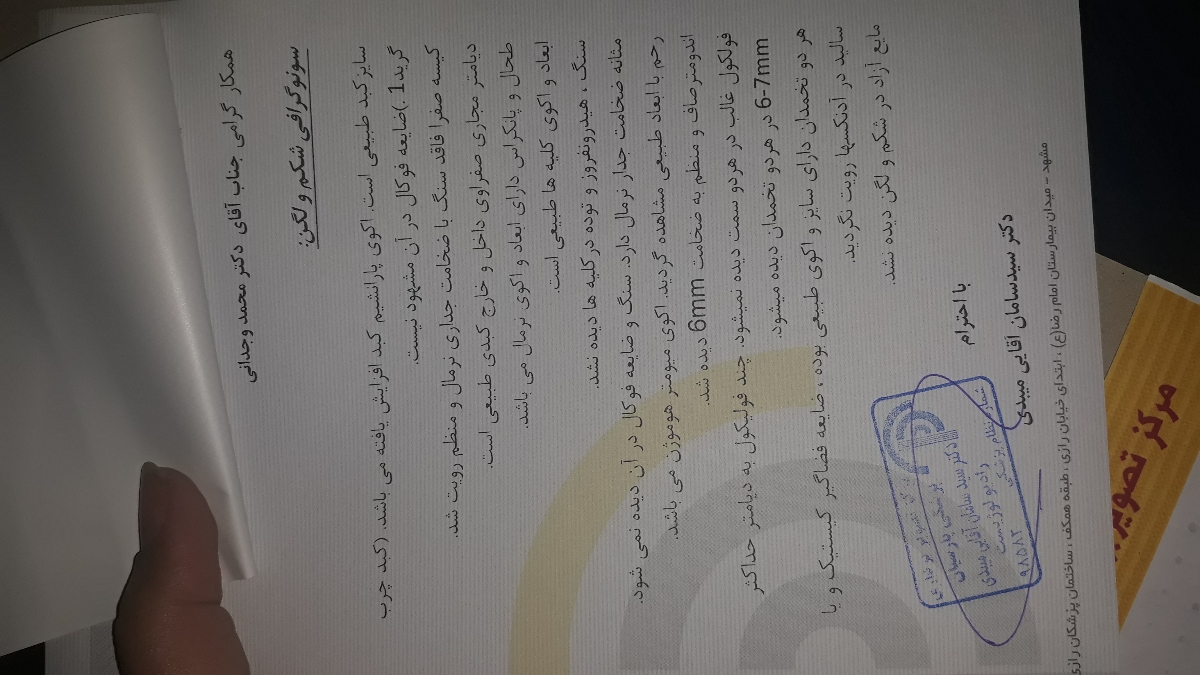 همکار گرامی جناب آقای دکتر محمد وجدانی
سونوگرافی شکم و لگن:
سایز کبد طبیعی است. اکوی پارانشیم کبد افزایش یافته می باشد. (کبد چرب
گرید1 .)ضایعه فوکال در آن مشهود نیست.
کیسه صفرا فاقد سنگ با ضخامت جداری نرمال و منظم رویت شد.
دیامتر مجاری صفراوی داخل و خارج کبدی طبیعی است.
طحال و پانکراس دارای ابعاد و اکوی نرمال می باشد.
ابعاد و اکوی کلیه ها طبیعی است.
سنگ ، هیدرونفروز و توده در کلیه ها دیده نشد.
مثانه ضخامت جدار نرمال دارد. سنگ و ضایعه فوکال در آن دیده نمی شود.
رحم با ابعاد طبیعی مشاهده گردید. اکوی میومتر هوموژن می باشد.
اندومترصاف و منظم به ضخامت 6mm دیده شد.
فولکول غالب در هردو سمت دیده نمیشود. چند فولیکول به دیامتر حداکثر
6-7mm در هردو تخمدان دیده میشود.
هر دو تخمدان دارای سایز و اکوی طبیعی بوده ، ضایعه فضاگیر کیستیک و یا
سالید در آدنکسها رویت نگردید.
مایع آزاد در شکم و لگن دیده نشد.
با احترام
دکتر سیدسامان آقایی میبدی
پزشکی پارسیان
دکتر سید سامان آقایی میبدی
رادیولوژیست
شماره نظام پزشکی
۹۸۵۸۲
مشهد - میدان بیمارستان امام رضا(ع) ، ابتدای خیابان رازی ، طبقه همکف ، ساختمان پزشکان رازی
مرکز تصویر